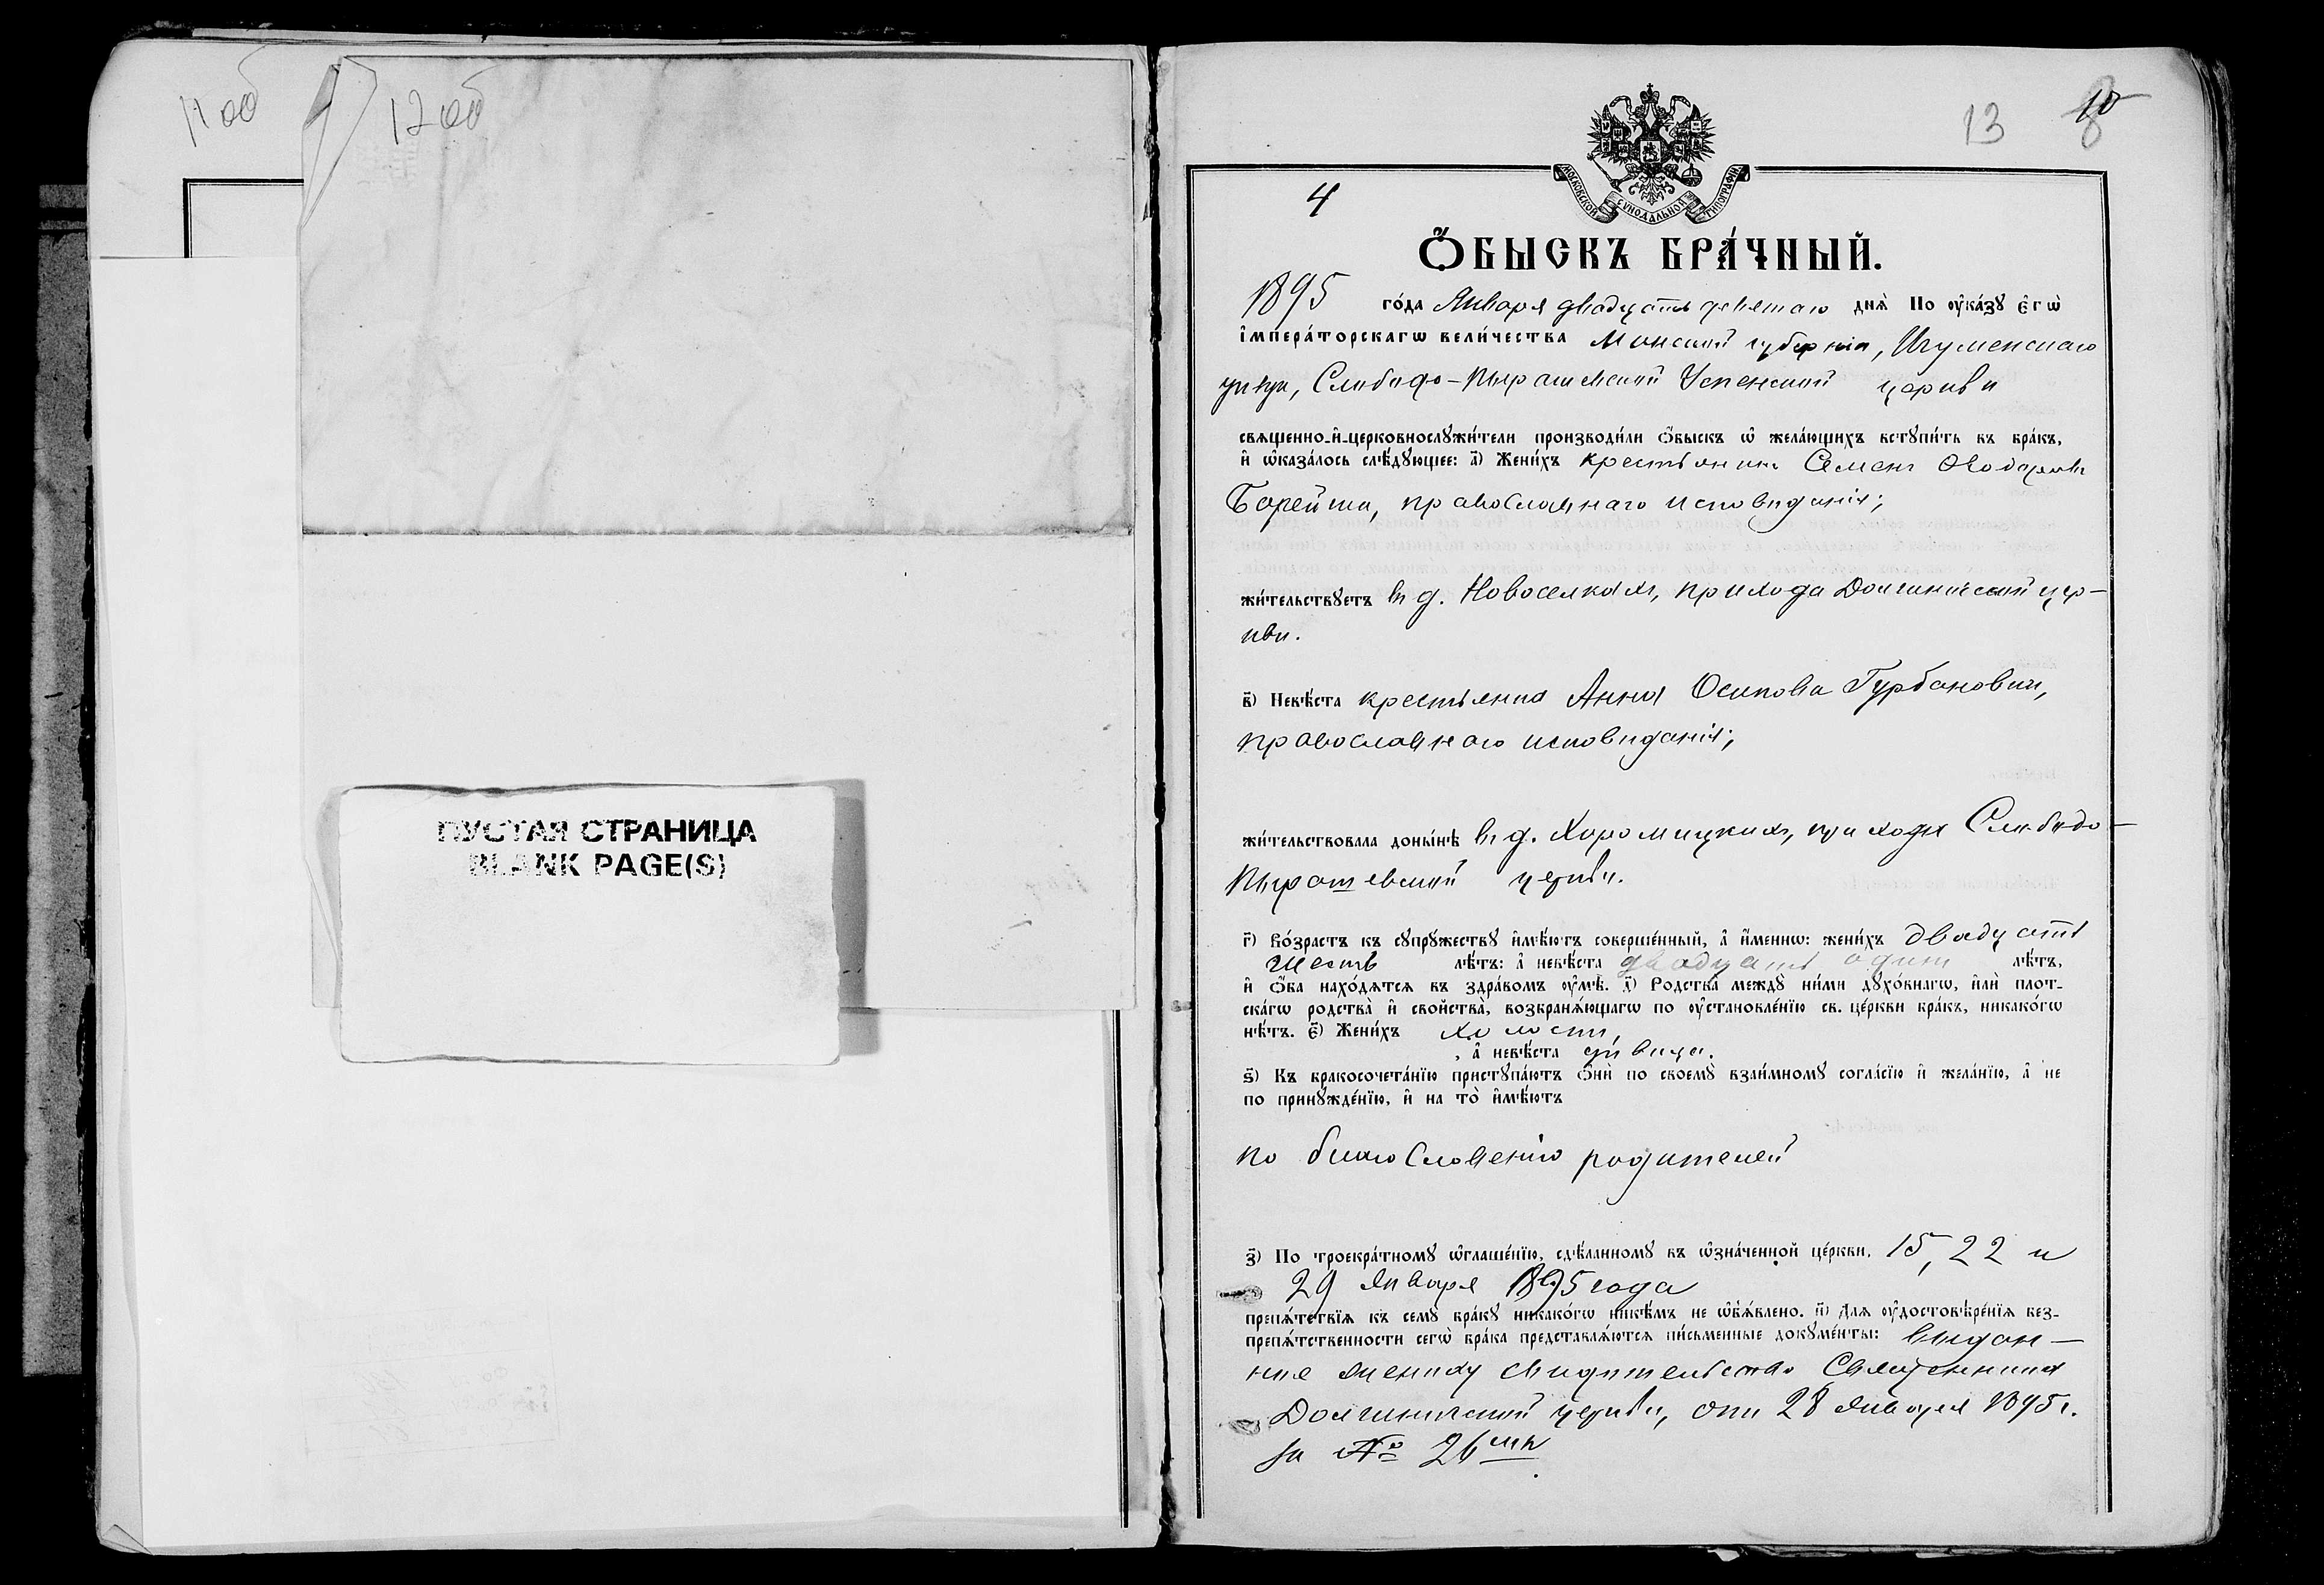 11 об
12 об
ПУСТАЯ СТРАНИЦА
BLANK PAGE(S)
13 8 10
МОСКОВСКОЙ СѴНОДАЛЬНОЙ ТИПОГРАФІИ
4
Ѻ҆БЫСКЪ БРА́ЧНЫЙ.
1895 го́да Января двадцать девятаго днѧ̀ По оу҆ка́зꙋ є҆гѡ̀
і҆мпера́торскагѡ вели́чества Минской губерніи, Игуменскаго
уѣзда, Слободо-Пырашевской Успенской церкви
свѧщенно-и҆-церковнослꙋжи́тели производи́ли ѻ҆́быскъ ѡ҆ жела́ющихъ вступи́ть въ бра́къ,
и҆ ѡ҆каза́лось слѣ́дꙋющее: а҃) Жени́хъ крестьянинъ Семенъ
Борейша, православнаго исповѣданія;
жи́тельствꙋетъ въ д. Новоселкахъ, прихода Долгиничской цер-
кви.
в҃) Невѣ́ста крестьянка Анна Осипова Гурбановичъ,
православнаго исповѣданія;
жи́тельствовала доны́нѣ въ д. Хоромицкихъ, прихода Слободо-
Пырашевской церкви.
г҃) Во́зрастъ къ сꙋпрꙋжествꙋ и҆мѣ́ютъ соверше́нный, а҆̀ и҆́меннѡ: жени́хъ двадцать
шесть лѣ́тъ: а҆̀ невѣ́ста двадцать одинъ лѣ́тъ,
и҆ ѻ҆́ба нахо́дѧтсѧ въ здра́вомъ оу҆мѣ̀. д҃) Родства̀ междꙋ̀ ни́ми дꙋхо́внагѡ, и҆лѝ плот-
ска́гѡ родства̀ и҆ свойства̀, возбранѧ́ющагѡ по оу҆становле́нїю св. це́ркви бра́къ, никако́гѡ
нѣ́тъ. є҃) Жени́хъ холостъ,
, а҆̀ невѣ́ста дѣвица.
ѕ҃) Къ бракосочета́нїю пристꙋпа́ютъ ѻ҆нѝ по своемꙋ̀ взаи́мномꙋ согла́сїю и҆ жела́нїю, а҆̀ не
по принꙋжде́нїю, и҆ на то̀ и҆мѣ́ютъ
по благословенію родителей
з҃) По троекра́тномꙋ ѡ҆глаше́нїю, сдѣ́ланномꙋ въ ѡ҆зна́ченной це́ркви, 15, 22 и
29 Января 1895 года
препѧ́тствїѧ къ семꙋ̀ бра́кꙋ никако́гѡ никѣ́мъ не ѡ҆б̾ѧ́влено. и҃) Длѧ оу҆достовѣре́нїѧ без-
препѧ́тственности сегѡ̀ бра́ка представлѧ́ютсѧ пи́сьменные докꙋме́нты: выдан-
ное жениху свидѣтельство Священника
Долгиничской церкви, отъ 28 Января 1895 г.
за № 26мъ.